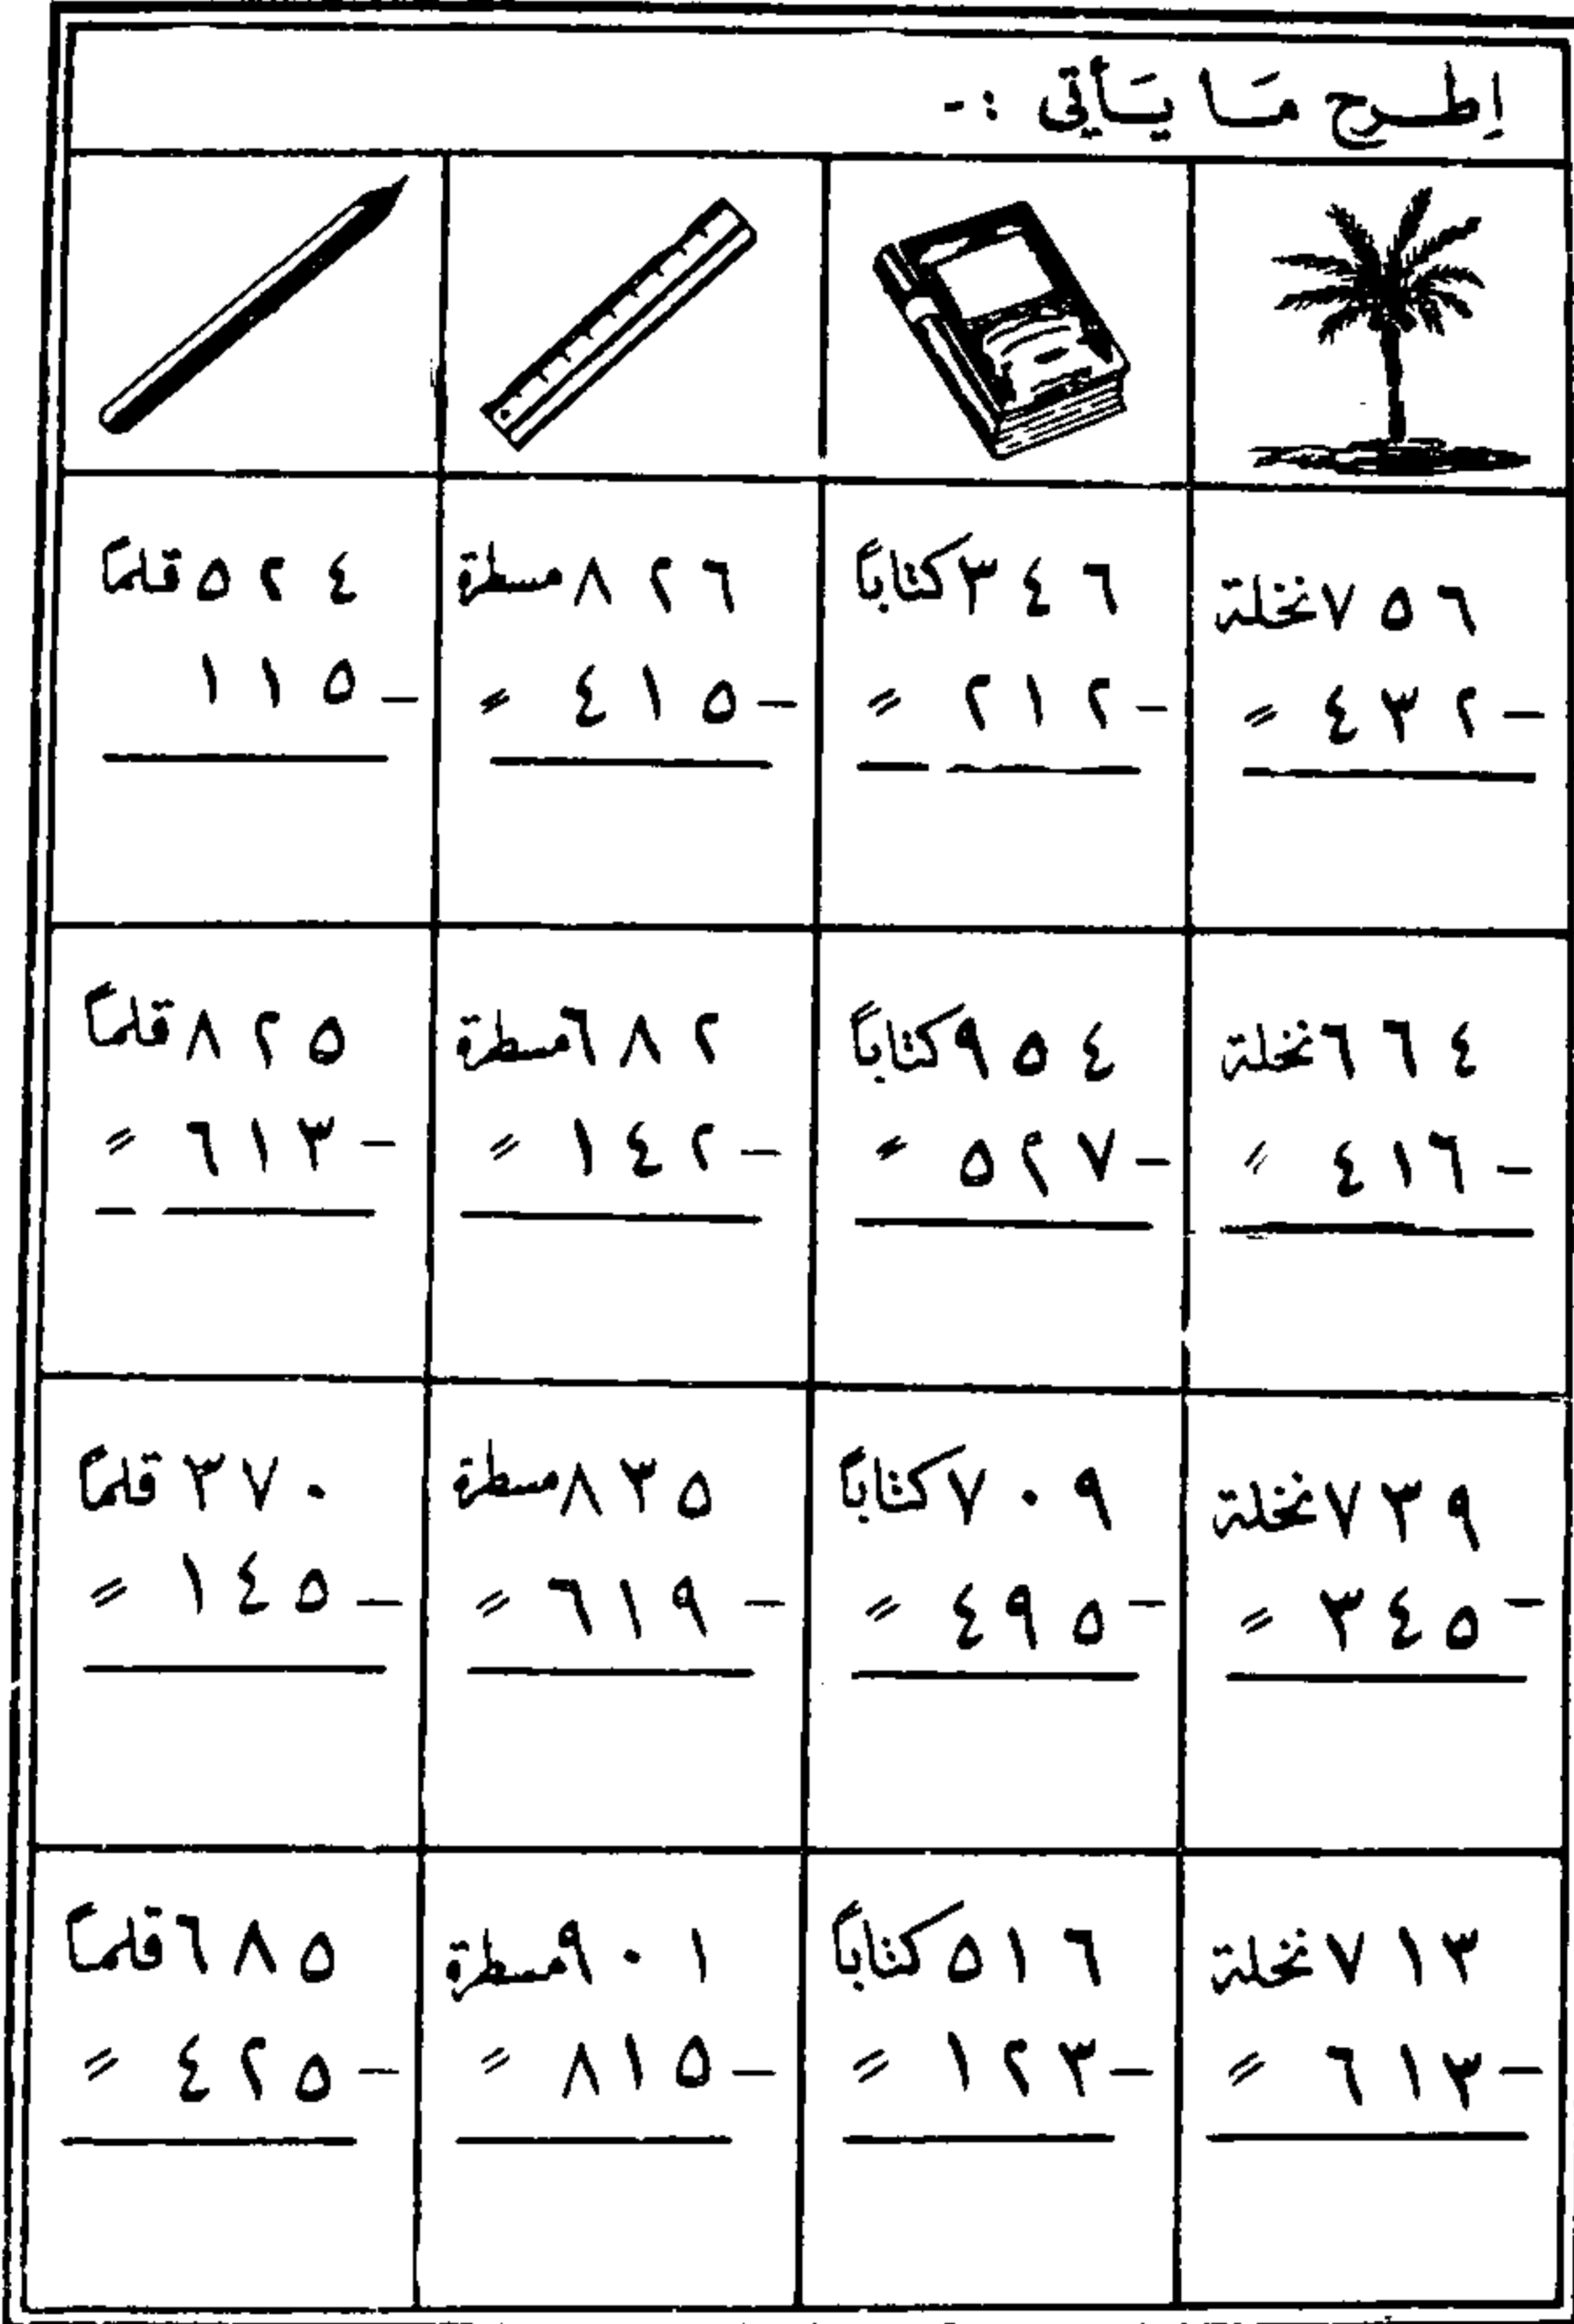 اِطرح مَا يَأتي :-
٧٥٦ نخلة
- ٤٣٢ 〃
٣٤٦ كتاباً
- ٢١٢ 〃
٨٢٦ مسطرة
- ٤١٥ 〃
٥٢٤ قلماً
- ١١٥
٦٦٤ نخلة
- ٤١٦ 〃
٩٥٤ كتاباً
- ٥٢٧ 〃
٦٨٢ مسطرة
- ١٤٢ 〃
٨٢٥ قلماً
- ٦١٣ 〃
٧٣٩ نخلة
- ٣٤٥ 〃
٧٠٩ كتاباً
- ٤٩٥ 〃
٨٣٥ مسطرة
- ٦١٩ 〃
٣٧٠ قلماً
- ١٤٥ 〃
٧١٣ نخلة
- ٦١٣ 〃
٥١٦ كتاباً
- ١٢٣ 〃
٩٠١ مسطرة
- ٨١٥ 〃
٦٨٥ قلماً
- ٤٢٥ 〃